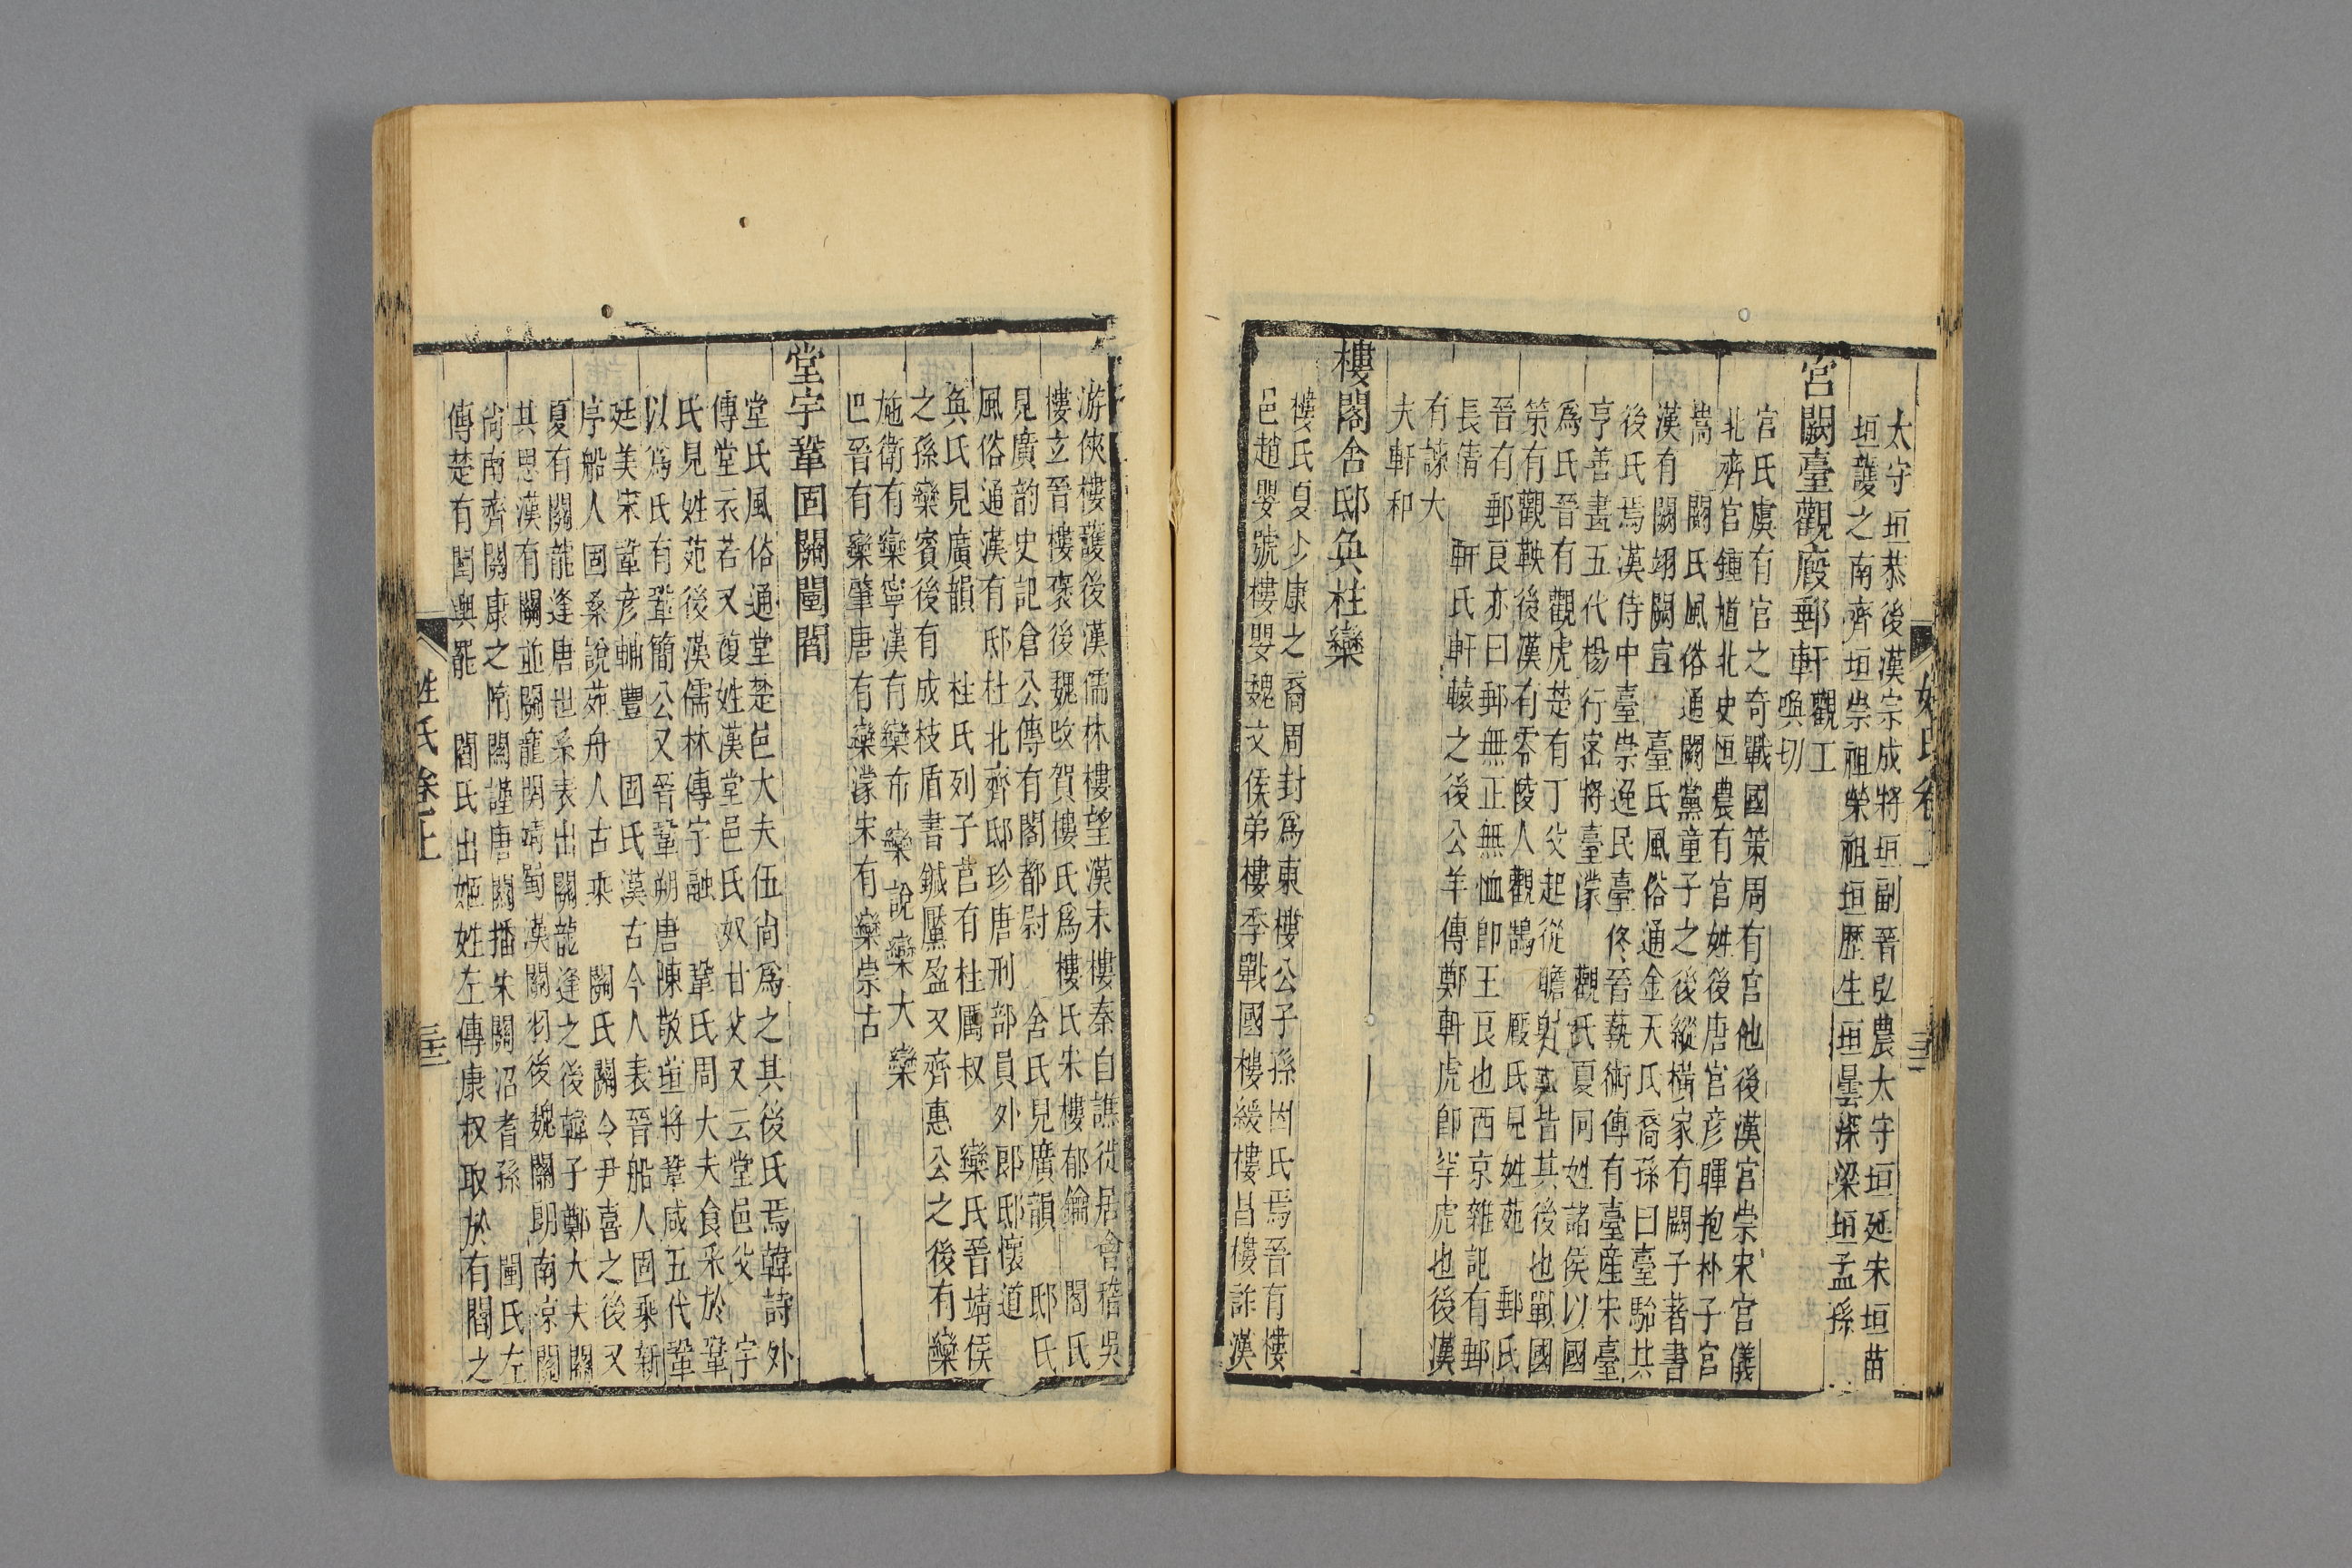 太守垣恭後漢宗成將垣副晉弘農太守垣延宋垣苗
垣護之南齊垣崇祖榮祖垣歷生垣曇深梁垣孟孫
宮闕臺觀廄郵軒觀工
喚切
宮氏虞有宮之奇戰國策周有宮他後漢宮崇宋宮儀
北齊宮鍾馗北史恒農有宮姓後唐宮彥暉抱朴子宮
嵩 闕氏風俗通闕黨童子之後縱橫家有闕子著書
漢有闕翊闕宣 臺氏風俗通金天氏裔孫曰臺駘其
後氏焉漢侍中臺崇逸民臺佟晉藝術傳有臺產宋臺
亨善畫五代楊行密將臺濛 觀氏夏同姓諸侯以國
爲氏晉有觀虎楚有丁父起從瞻射皆其後也戰國
策有觀鞅後漢有零陵人觀鵠 廄氏見姓苑 郵氏
晉有郵良亦曰郵無正無恤卽王良也西京雜記有郵
長倩 軒氏軒轅之後公羊傳鄭軒虎卽罕虎也後漢
有諫大
夫軒和
樓閣舍邸奐柱欒
樓氏夏少康之裔周封爲東樓公子孫因氏焉晉有樓
邑趙嬰號樓嬰魏文侯弟樓季戰國樓緩樓昌樓詐漢
游俠樓護後漢儒林樓望漢末樓秦自譙徙居會稽吳
樓玄晉樓褒後魏改賀樓氏爲樓氏宋樓郁鑰 閣氏
見廣韵史記倉公傳有閣都尉 舍氏見廣韻 邸氏
風俗通漢有邸杜北齊邸珍唐刑部員外郎邸懷道
奐氏見廣韻 柱氏列子莒有柱厲叔 欒氏晉靖侯
之孫欒賓後有成枝盾書鍼黶盈又齊惠公之後有欒
施衛有欒寧漢有欒布 欒說欒大欒
巴晉有欒肇唐有欒濛宋有欒崇古
堂宇鞏固關闉閻
堂氏風俗通堂楚邑大夫伍尚爲之其後氏焉韓詩外
傳堂衣若又複姓漢堂邑氏奴甘父又云堂邑父 宇
氏見姓苑後漢儒林傳宇融 鞏氏周大夫食采於鞏
以爲氏有鞏簡公又晉鞏朔唐陳敬瑄將鞏咸五代鞏
廷美宋鞏彥輔豐 固氏漢古今人表晉船人固乘新
序船人固桑說苑舟人古乘 關氏關令尹喜之後又
夏有關龍逢唐世系表出關龍逢之後韓子鄭大夫關
其思漢有關並關龍關靖蜀漢關羽後魏關朗南凉關
尚南齊關康之隋關謹唐關播宋關沼耆孫 闉氏左
傳楚有闉輿罷 閻氏出姬姓左傳康叔取於有閻之
姓氏卷上